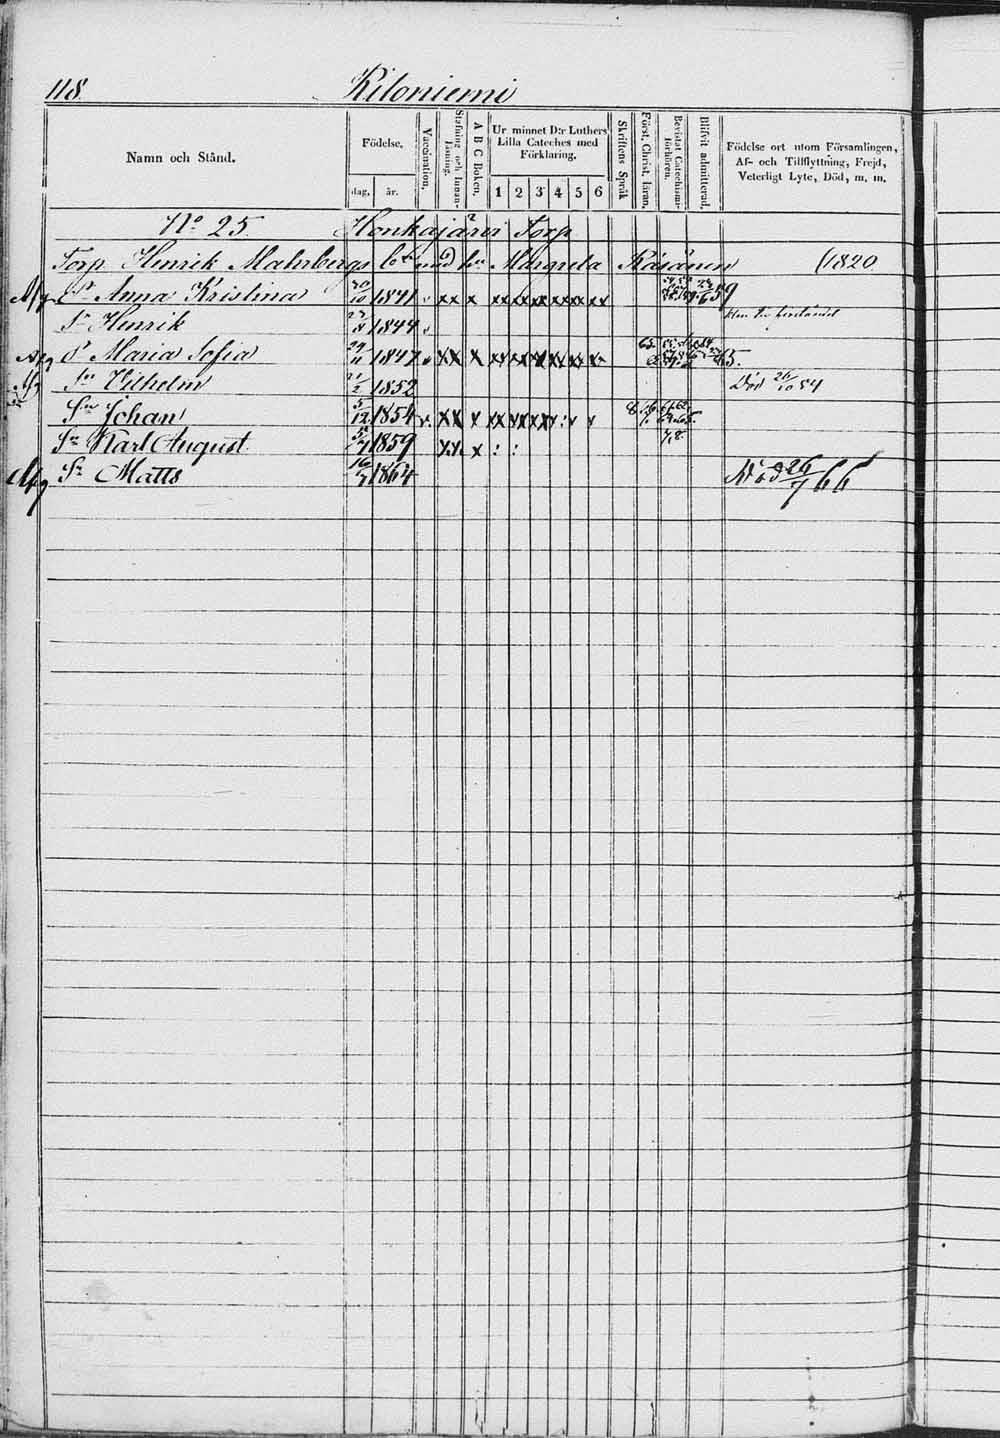 118.
Kiloniemi
Namn och Stånd.
Födelse,
dag, år.
Vaccination.
Stafning och Innan-läsning.
A B C Boken.
Ur minnet D:r Luthers Lilla Cateches med Förklaring.
1 2 3 4 5 6
Skriftens Språk
Först. Christ. läran.
Bevistat Catechismi-förhören.
Blifvit admitterad.
Födelse ort utom Församlingen, Af- och Tillflyttning, Frejd, Veterligt Lyte, Död, m. m.
No 25. Honkajärvi Torp
Torp Henrik Mahrbergs med Margreta Räsänen (1820
Afg Anna Kristina 20/10 1841 v xx x xx xx xx xx xx xx 59
Sn Henrik 1844 v
Afg Maria Sofia 29/11 1847 xx x xx xx xx xx xx xx 65.
Afg Sn Vilhelm 21/2 1852 Död 26/10 54
Sn Johan 5/12 1854 v. xx x
Sn Karl August 1859 xx x : :
Afg Sn Matts 16/7 1864 Död 26/7 66